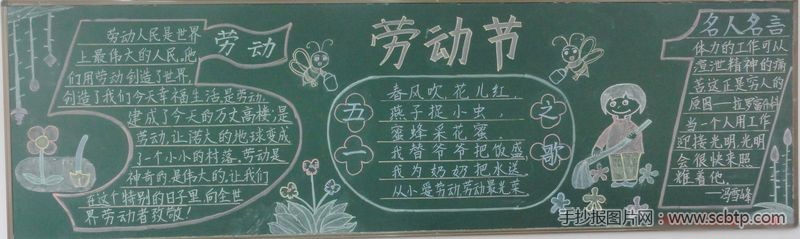 劳动
劳动人民是世界
上最伟大的人民,他
们用劳动创造了世界,
创造了我们今天幸福生活,是劳动,
建成了今天的万丈高楼;是
劳动,让诺大的地球变成
了一个小小的村落。劳动是
神奇的是伟大的,让我们
在这个特别的日子里,向全世
界劳动者致敬!
劳动节
五一
之歌
春风吹,花儿红,
燕子捉小虫,
蜜蜂采花蜜,
我替爷爷把饭盛,
我为奶奶把水送,
从小爱劳动劳动最光荣
名人名言
体力的工作可以
涩泄精神的痛
苦这正是穷人的
原图——拉罗
当一个人用工作
迎接光明,光明
会很快来照
耀着他。
——冯雪峰
手抄报图片网:www.scbtp.com